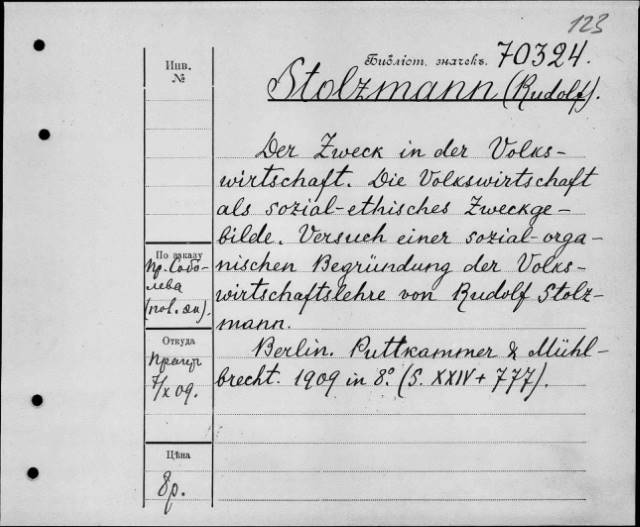 123
Инв.
№
Библіот. значекъ. 70324.
Stolzmann (Rudolf).
Der Zweck in der Volks-
wirtschaft. Die Volkswirtschaft
als sozial-ethisches Zweckge-
bilde. Versuch einer sozial-orga-
nischen Begründung der Volks-
wirtschaftslehre von Rudolf Stolz-
mann.
Berlin. Puttkammer & Mühl-
brecht. 1909 in 8º. (S. XXIV + 777).
По заказу
Пр. Собо-
лева
(pol. эк).
Откуда
7/X 09.
Цѣна
8р.